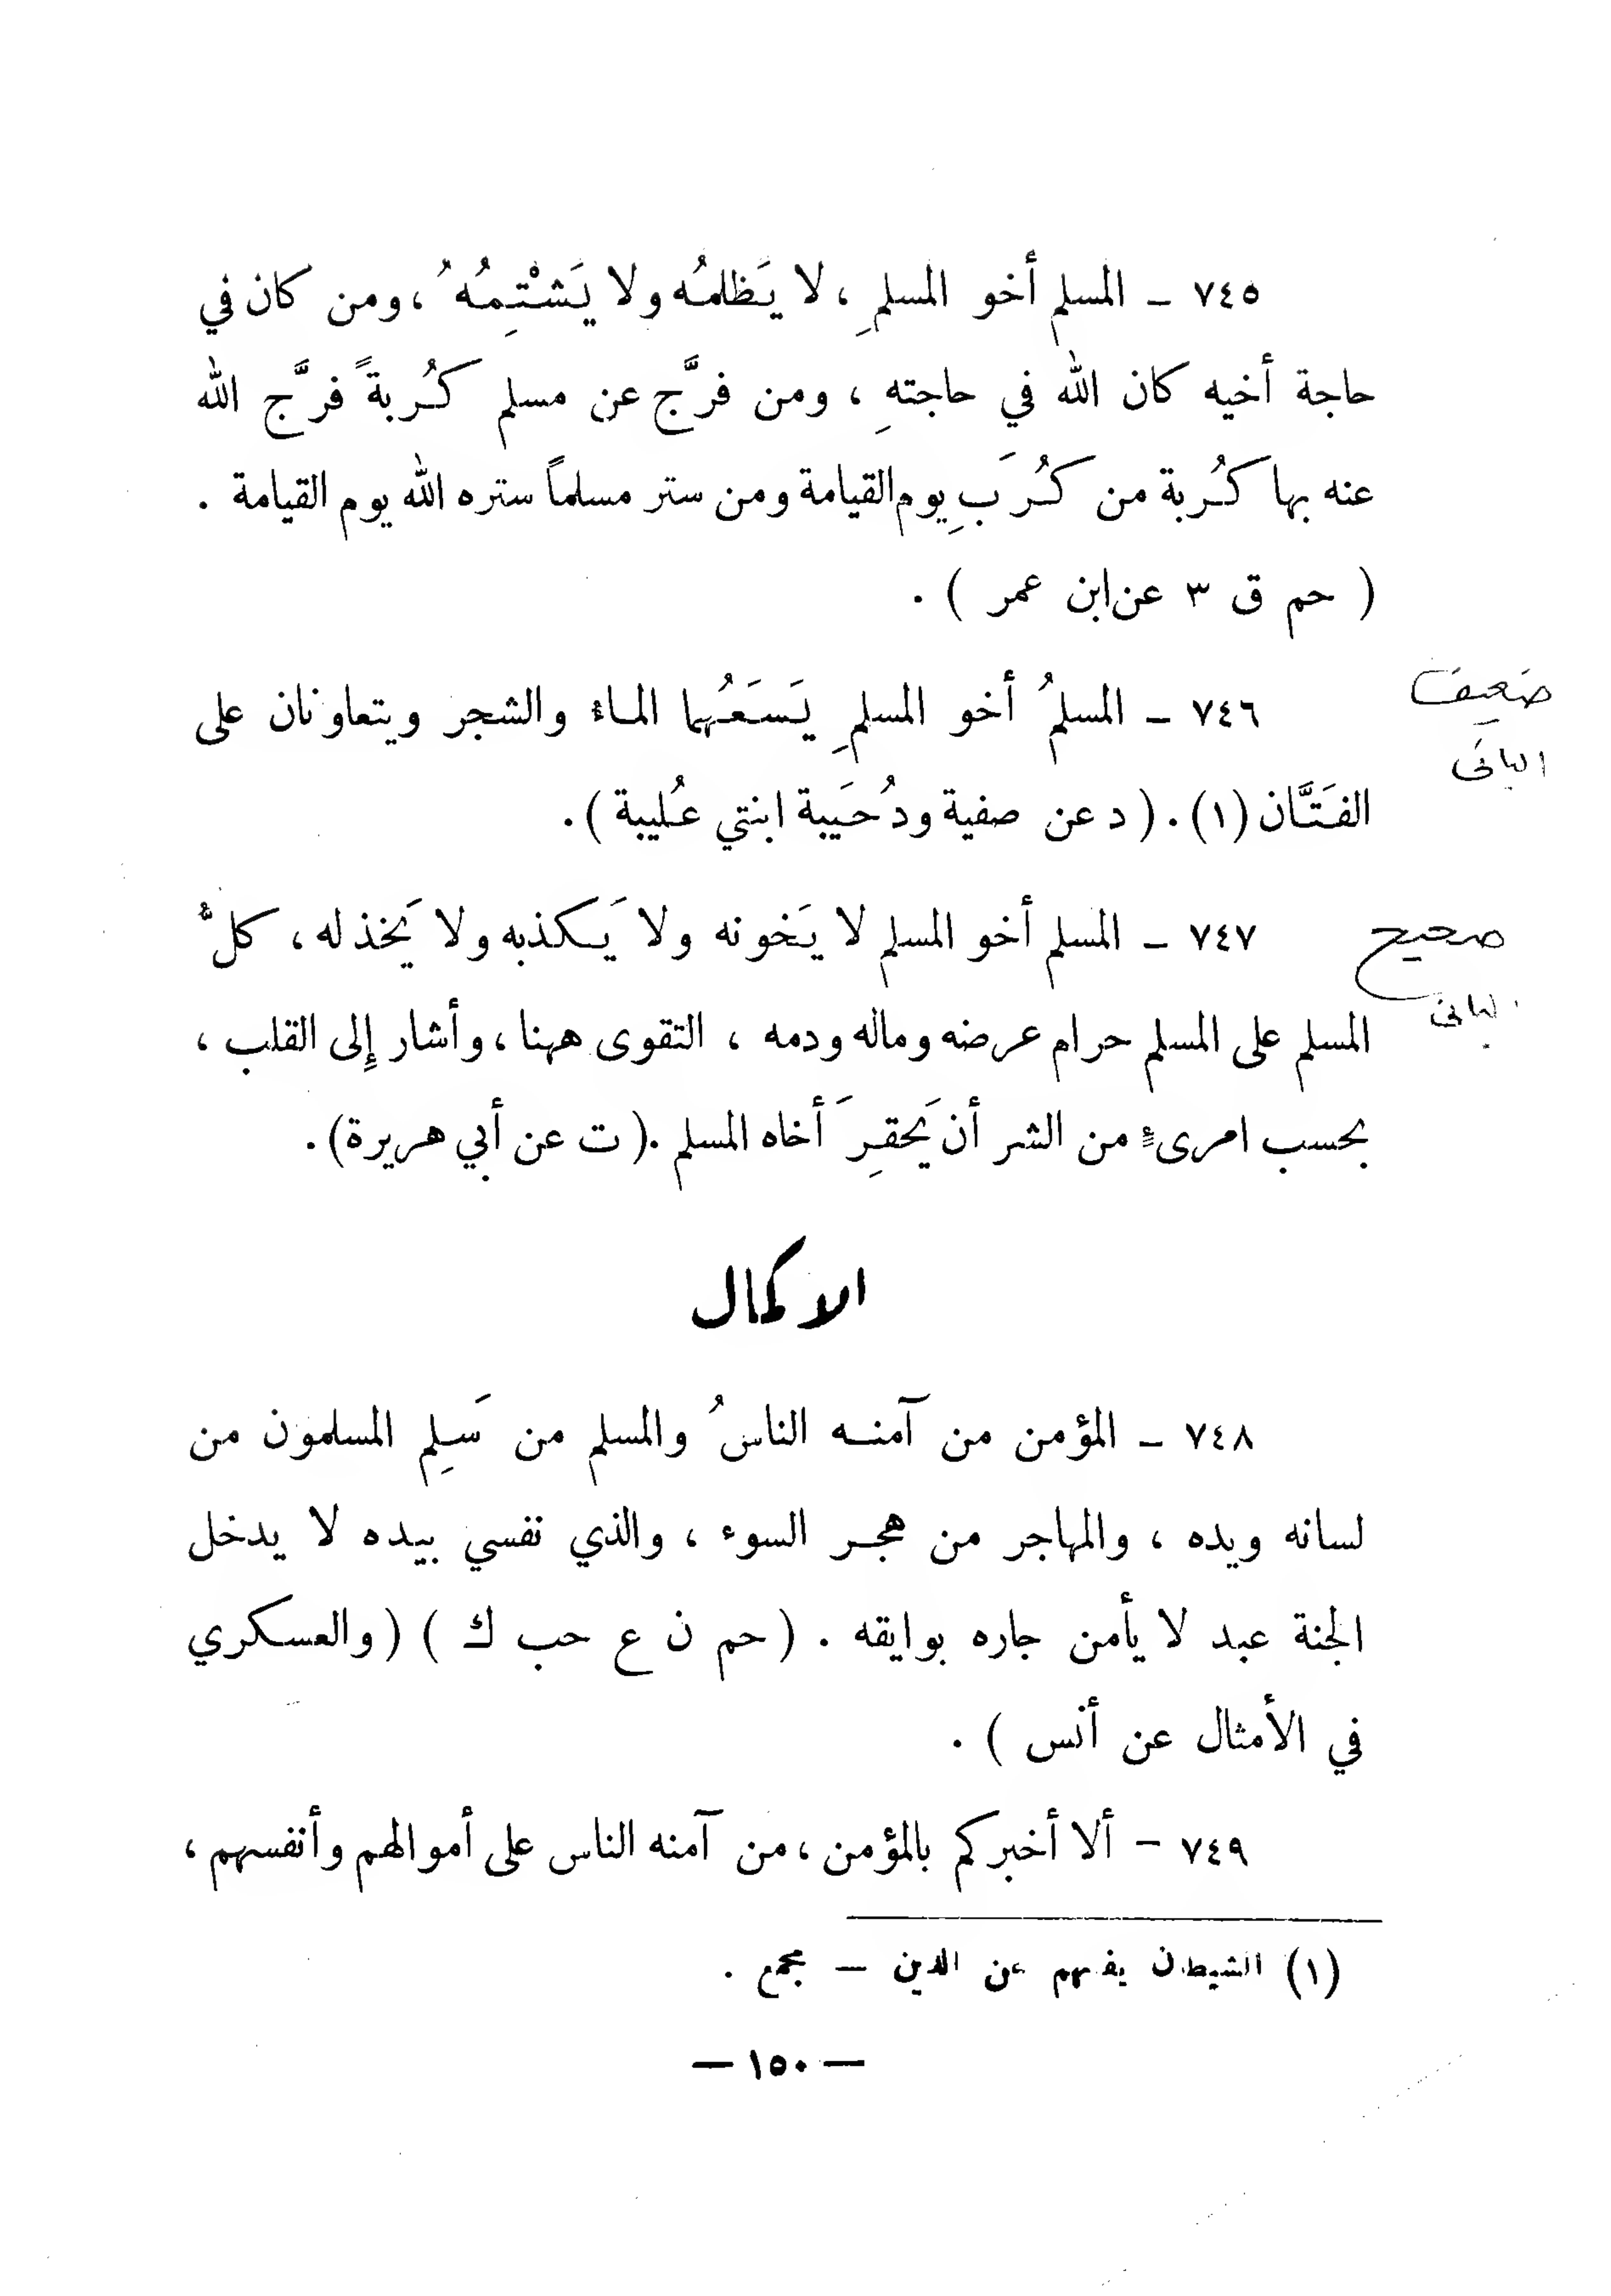 ٧٤٥ – المسلم أخو المسلمِ ، لا يَظلمُه ولا يَشْتِمُهُ ، ومن كان في
حاجة أخيه كان الله في حاجتهِ ، ومن فرَّج عن مسلم كُربةً فرَّج الله
عنه بها كُربة من كُرَبِ يوم القيامة ومن ستر مسلماً ستره الله يوم القيامة .
( حم ق ٣ عن ابن عمر ) .
ضَعيف
٧٤٦ – المسلمُ أخو المسلمِ يَسَعُهما الماءُ والشجر ويتعاونان على
البانى
الفَتَّان (١) . ( د عن صفية ودُحَيبة ابنتي عُليبة ) .
صحيح
٧٤٧ – المسلم أخو المسلم لا يَخونه ولا يَكذبه ولا يَخذله ، كلُّ
البانى
المسلم على المسلم حرام عرضه وماله ودمه ، التقوى ههنا ، وأشار إلى القلب ،
بحسب امرىءٍ من الشر أن يَحقِرَ أخاه المسلم . ( ت عن أبي هريرة ) .
الاكمال
٧٤٨ – المؤمن من آمنه الناسُ والمسلم من سَلِم المسلمون من
لسانه ويده ، والمهاجر من هجر السوء ، والذي نفسي بيده لا يدخل
الجنة عبد لا يأمن جاره بوايقه . ( حم ن ع حب ك ) ( والعسكري
في الأمثال عن أنس ) .
٧٤٩ – ألا أخبركم بالمؤمن ، من آمنه الناس على أموالهم وأنفسهم ،
(١) الشيطان يفتنهم عن الدين – مجمع .
— ١٥٠ —